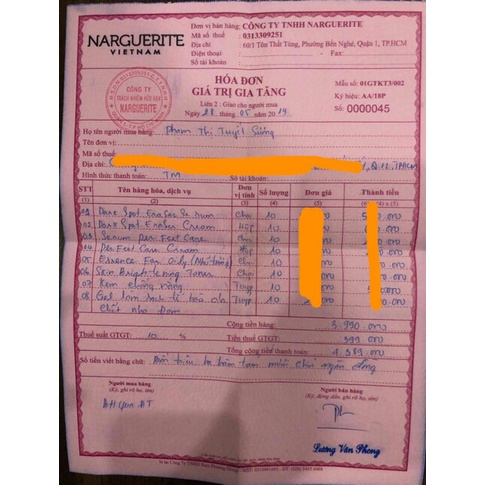 NARGUERITE
VIETNAM
Đơn vị bán hàng: CÔNG TY TNHH NARGUERITE
Mã số thuế: 0313309251
Địa chỉ: 60/1 Tôn Thất Tùng, Phường Bến Nghé, Quận 1, TP.HCM
Điện thoại: Fax:
Số tài khoản
CÔNG TY
TRÁCH NHIỆM HỮU HẠN
NARGUERITE
HÓA ĐƠN
GIÁ TRỊ GIA TĂNG
Liên 2: Giao cho người mua
Ngày 28 tháng 05 năm 2019
Mẫu số: 01GTKT3/002
Ký hiệu: AA/18P
Số: 0000045
Họ tên người mua hàng: Phạm Thị Tuyết Sương
Tên đơn vị:
Mã số thuế:
Địa chỉ: Q.12, TPHCM
Hình thức thanh toán: TM Số tài khoản:
STT Tên hàng hóa, dịch vụ Đơn vị tính Số lượng Đơn giá Thành tiền
(1) (2) (3) (4) (5) (6) = (4) x (5)
01 Dark Spot Eraser Serum Chai 10
02 Dark Spot Eraser Cream Hộp 10
03 Serum Per Feet Care 10
04 Per Feet Care Cream Hộp 10
05 Essence For Oily 10
06 Skin Brightening Toner Chai 10
07 Kem chống nắng Tuýp 10
08 Gel làm sạch tế bào da Tuýp 10
chết nha đam
Cộng tiền hàng: 3.990.000
Thuế suất GTGT: 10 % Tiền thuế GTGT: 399.000
Tổng cộng tiền thanh toán: 4.389.000
Số tiền viết bằng chữ: Bốn triệu ba trăm tám mươi chín ngàn đồng
Người mua hàng
(Ký, ghi rõ họ, tên)
Người bán hàng
(Ký, đóng dấu, ghi rõ họ, tên)
Lương Văn Phong